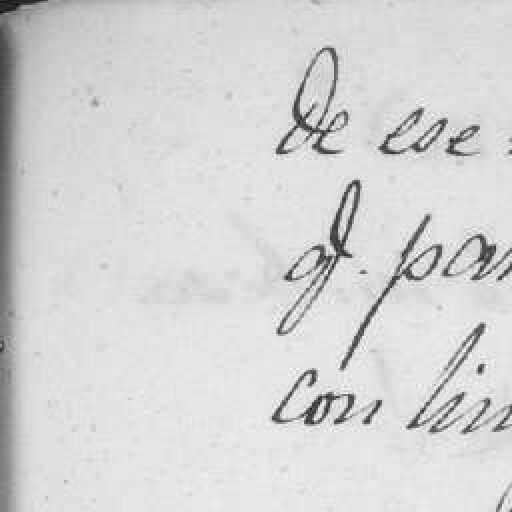 De ese
qᵉ. par
con lin